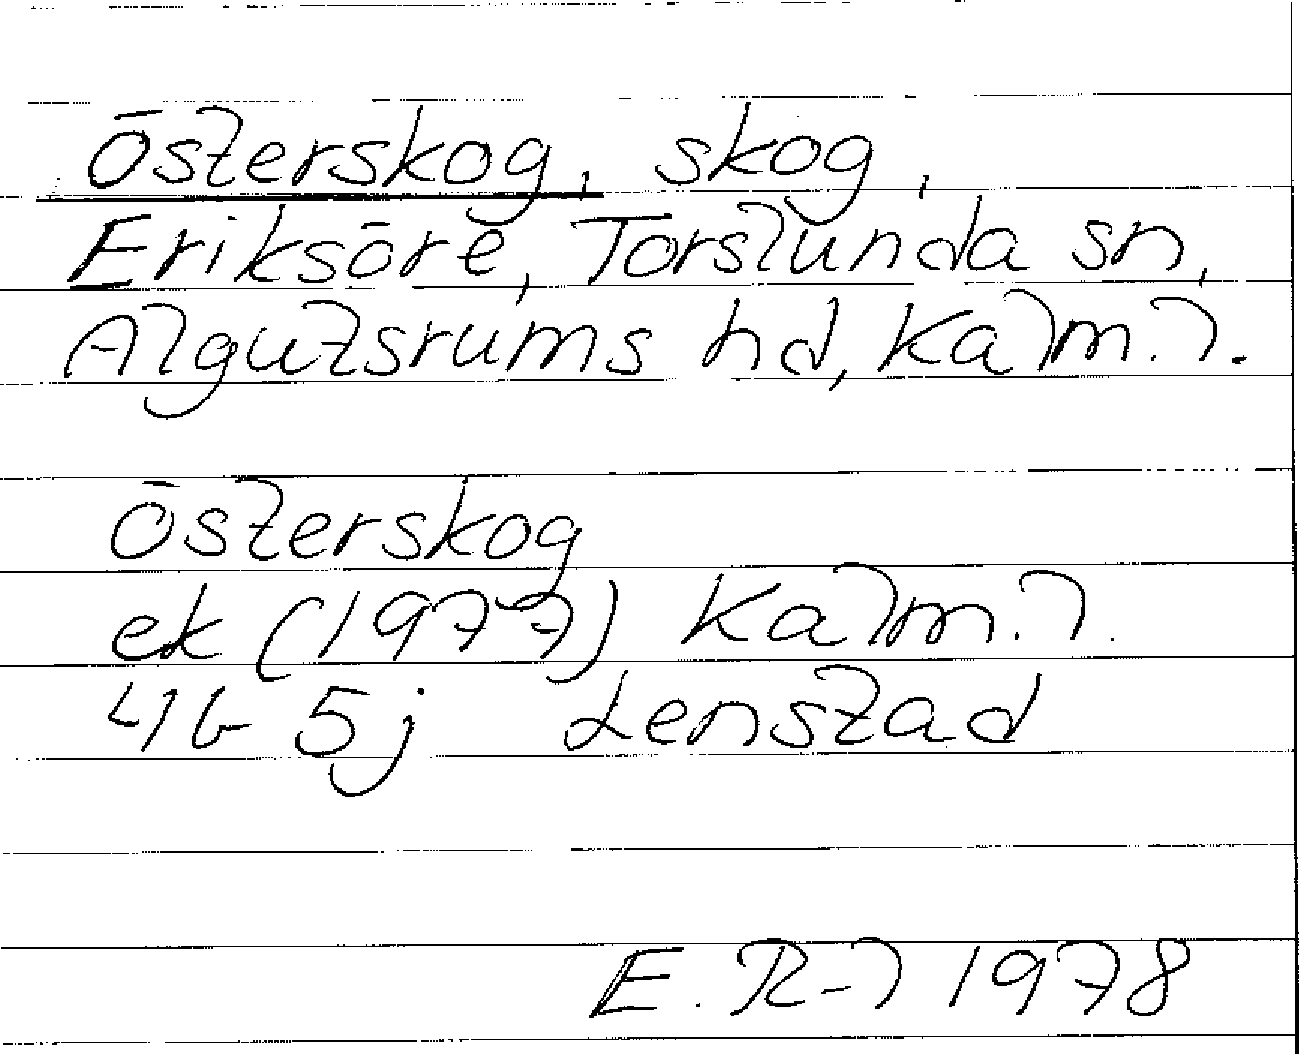 Österskog, skog,
Eriksöre, Torslunda sn,
Algutsrums hd, Kalm. l.
Österskog
ek (1977) Kalm. l.
4G 5j Lenstad
E. R-l 1978